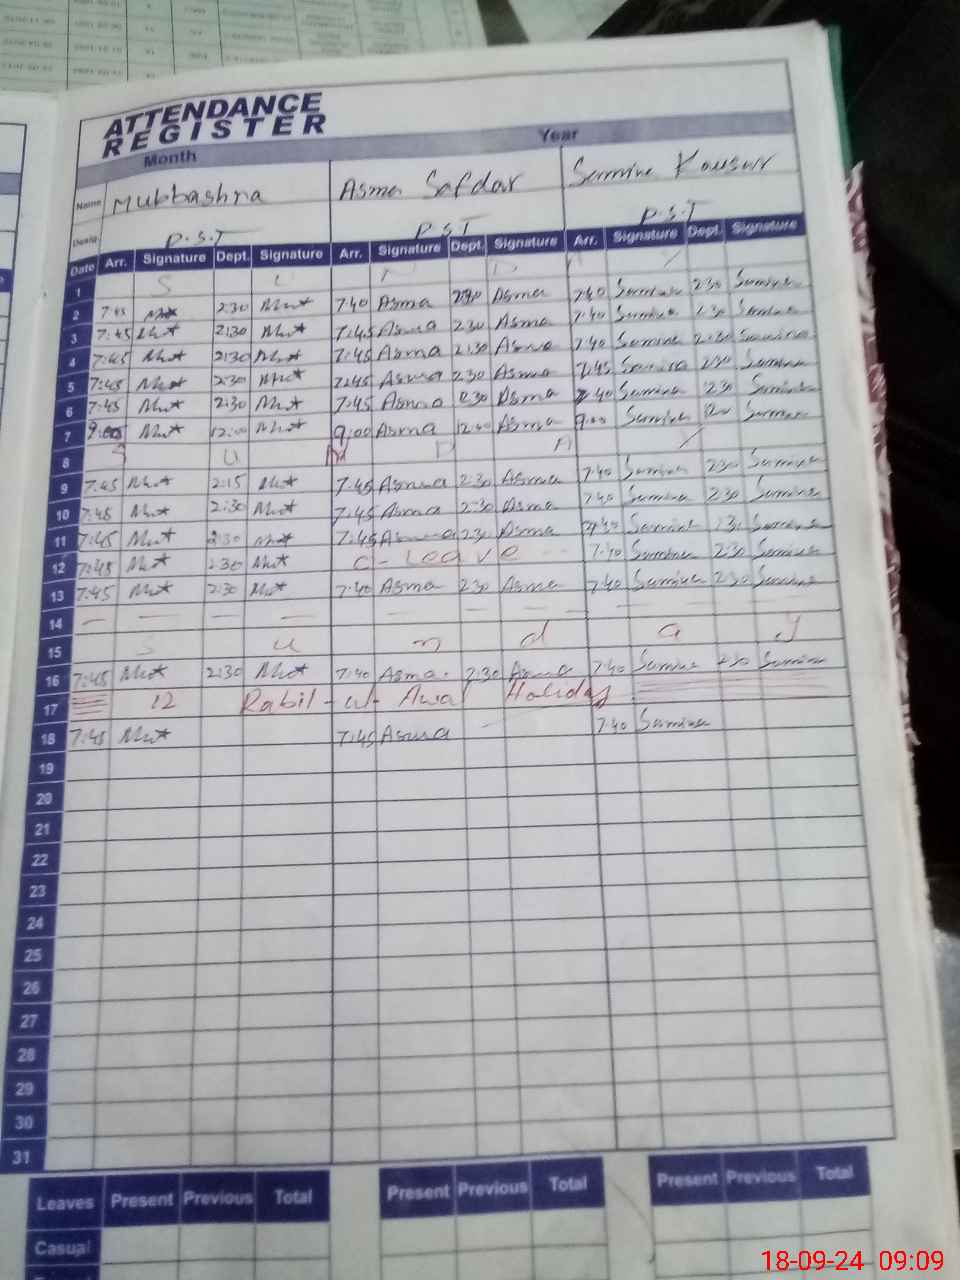 ATTENDANCE
REGISTER
Month Year
Name Mubbashra Asma Safdar Samina Kousar
Desig P.S.T P.S.T P.S.T
Date Arr. Signature Dept. Signature Arr. Signature Dept. Signature Arr. Signature Dept. Signature
1 S U N D A Y
2 7:45 2:30 7:40 Asma 2:30 Asma 7:40 Samina 2:30 Samina
3 7:45 2:30 7:45 Asma 2:30 Asma 7:40 Samina 2:30 Samina
4 7:45 2:30 7:45 Asma 2:30 Asma 7:40 Samina 2:30 Samina
5 7:45 2:30 7:45 Asma 2:30 Asma 7:45 Samina 2:30 Samina
6 7:45 2:30 7:45 Asma 2:30 Asma 7:40 Samina 2:30 Samina
7 9:00 12:00 9:00 Asma 12:00 Asma 9:00 Samina Samina
8 S U N D A Y
9 7:45 2:15 7:45 Asma 2:30 Asma 7:40 Samina 2:30 Samina
10 7:45 2:30 7:45 Asma 2:30 Asma 7:40 Samina 2:30 Samina
11 7:45 2:30 7:45 Asma 2:30 Asma 7:40 Samina 2:30 Samina
12 7:45 2:30 C-Leave 7:40 Samina 2:30 Samina
13 7:45 2:30 7:40 Asma 2:30 Asma 7:40 Samina 2:30 Samina
14 — — — — — — — — — — —
15 S u n d a y
16 7:45 2:30 7:40 Asma 2:30 Asma 7:40 Samina 2:30 Samina
17 12 Rabil-ul-Awal Holiday
18 7:45 7:45 Asma 7:40 Samina
19
20
21
22
23
24
25
26
27
28
29
30
31
Leaves Present Previous Total Present Previous Total Present Previous Total
Casual
18-09-24 09:09